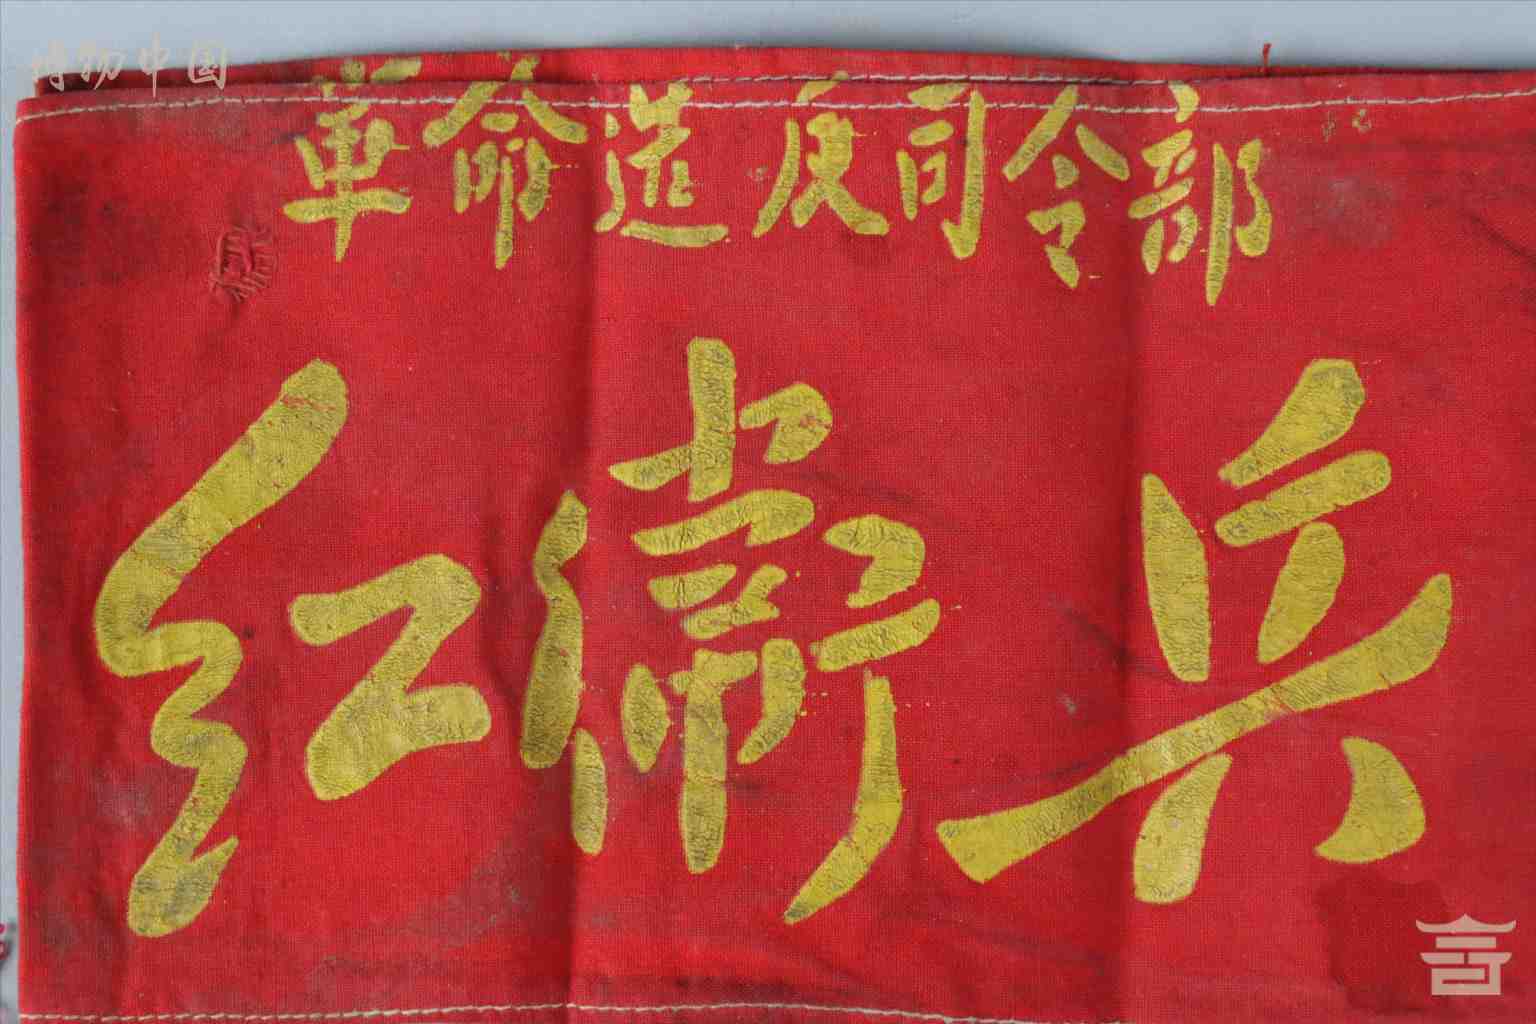 博物中国
革命造反司令部
红卫兵